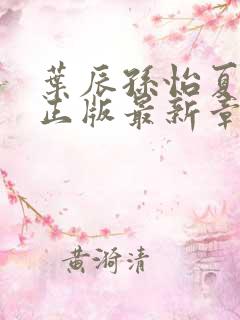 葉辰孫怡夏
正版最新章
黄漪清